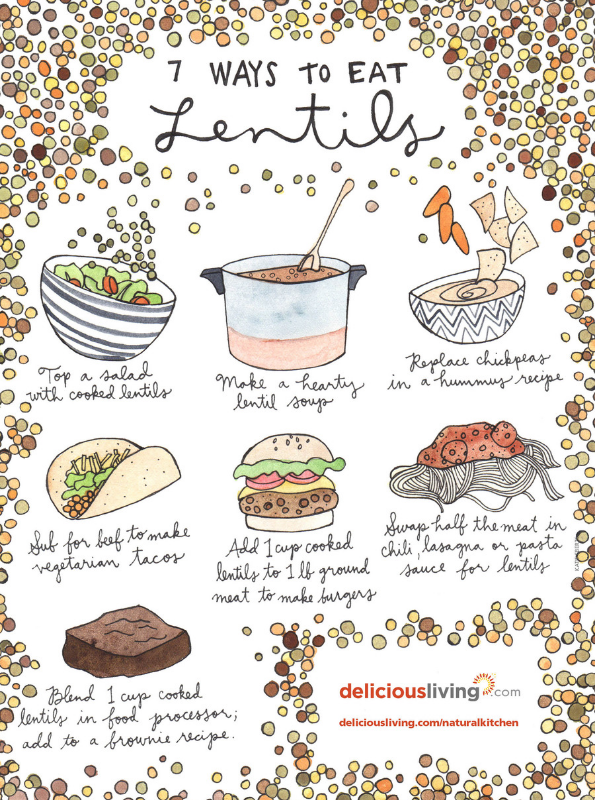 7 WAYS TO EAT
Lentils
Top a salad
with cooked lentils
Make a hearty
lentil soup
Replace chickpeas
in a hummus recipe
Sub for beef to make
vegetarian tacos
Add 1 cup cooked
lentils to 1 lb ground
meat to make burgers
Swap half the meat in
chili, lasagna or pasta
sauce for lentils
Blend 1 cup cooked
lentils in food processor;
add to a brownie recipe.
deliciousliving.com
deliciousliving.com/naturalkitchen